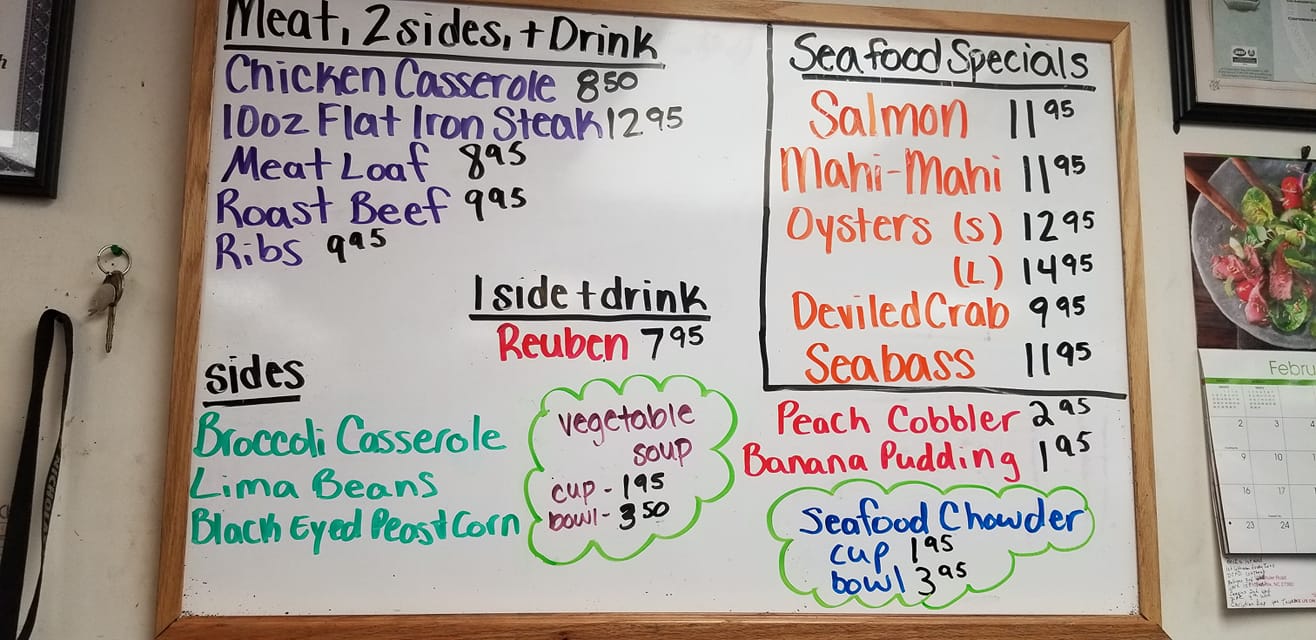 Meat, 2 sides, + Drink
Chicken Casserole 8 50
10oz Flat Iron Steak 12 95
Meat Loaf 8 95
Roast Beef 9 95
Ribs 9 95
1 side + drink
Reuben 7 95
sides
Broccoli Casserole
Lima Beans
Black Eyed Peas + Corn
vegetable
soup
cup - 1 95
bowl - 3 50
Seafood Specials
Salmon 11 95
Mahi-Mahi 11 95
Oysters (S) 12 95
(L) 14 95
Deviled Crab 9 95
Seabass 11 95
Peach Cobbler 2 95
Banana Pudding 1 95
Seafood Chowder
cup 1 95
bowl 3 95
Februa
2 3 4
9 10 11
16 17 18
23 24 25